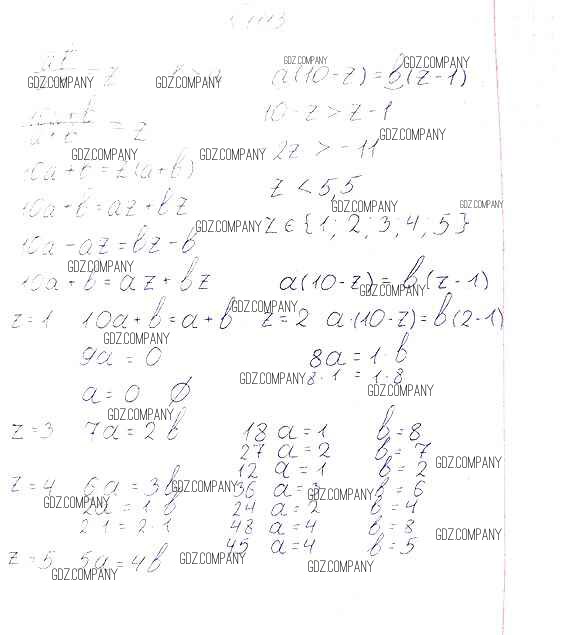 1113
GDZ.COMPANY GDZ.COMPANY
= z
GDZ.COMPANY GDZ.COMPANY a(10-z) = b(z-1)
10a+b = z 10-z > z-1
GDZ.COMPANY
GDZ.COMPANY GDZ.COMPANY 2z > -11
10a+b = z(a+b)
z < 5,5
GDZ.COMPANY GDZ.COMPANY
10a+b = az+bz
GDZ.COMPANY z ∈ {1; 2; 3; 4; 5}
10a-az = bz-b
GDZ.COMPANY
10a+b = az+bz a(10-z) = b(z-1)
GDZ.COMPANY
GDZ.COMPANY
z=1 10a+b = a+b z=2 a·(10-z) = b(2-1)
GDZ.COMPANY
9a = 0 8a = 1·b
GDZ.COMPANY 8·1 = 1·8
a = 0 Ø GDZ.COMPANY
GDZ.COMPANY
z=3 7a = 2b 18 a=1 b=8
27 a=2 b=7
GDZ.COMPANY
12 a=1 b=2
z=4 6a = 3b GDZ.COMPANY 36 a=3 b=6
GDZ.COMPANY GDZ.COMPANY
2a = 1·b 24 a=2 b=4
2·1 = 2·1 48 a=4 b=8
GDZ.COMPANY
45 a=4 b=5
z=5 5a = 4b GDZ.COMPANY
GDZ.COMPANY GDZ.COMPANY